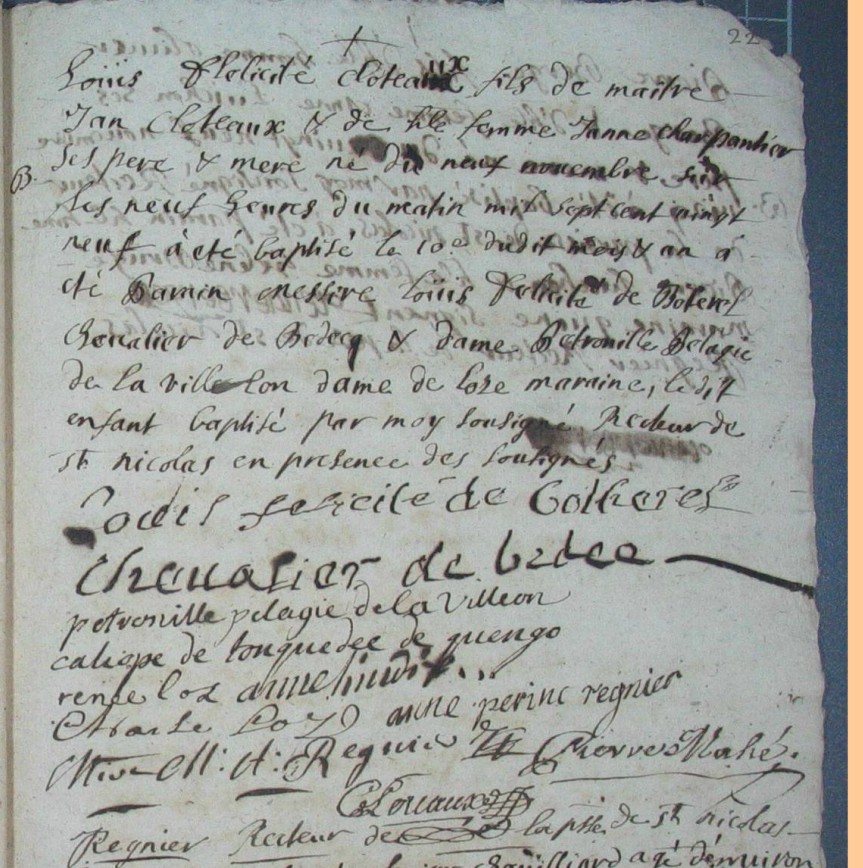 22
Loüis félicité cloteaux fils de maitre
Jan Cloteaux & de    femme Janne charpantier
B. ses pere & mere né du neuf novembre sur
les neuf heures du matin mil sept cent vingt
neuf à été baptisé le 10e dudit mois & an a
été Parain messire Loüis félicité de Boterel
chevalier de Bedeeq & dame Petronille Pelagie
de la villeon dame de loze maraine, ledit
enfant baptisé par moy sousigné Recteur de
st nicolas en presence des sousignés
Louis felicité de Botherel
chevalier de bedee
petronille pelagie de la Villeon
caliope de tonquedec de quengo
renee loz anne
Loz anne perinc regnier
M: A: Regnier Pierre Mahé.
Clouaux
Regnier Recteur de la psse de st nicolas
agé d'enuiron